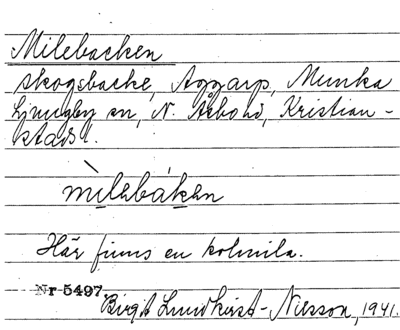 Milebacken
skogsbacke, Aggarp, Munka
Ljungby sn, N. Åsbo hd, Kristian-
stads l.
mìlebáken
Här finns en kolmila.
Nr 5497
Birgit Lundkvist-Nilsson, 1941.